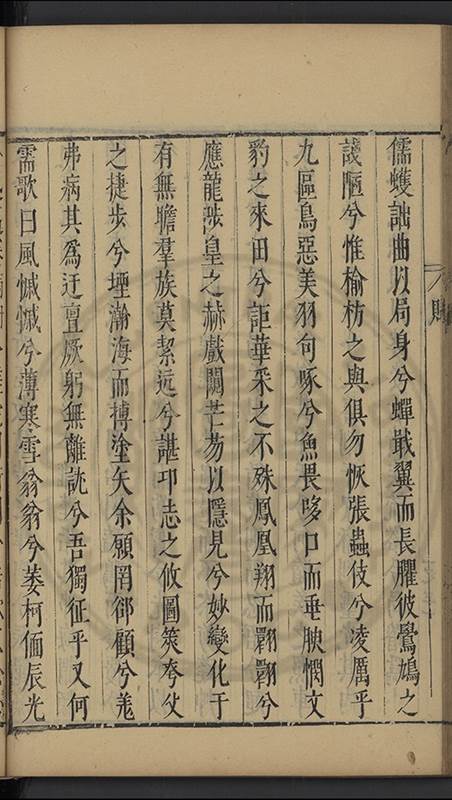 八賦
儒蠖詘曲以局身兮蟬戢翼而長臞彼鷽鳩之
識陋兮惟榆枋之與俱勿恢張蟲伎兮凌厲乎
九區鳥惡美羽句啄兮魚畏哆口而垂腴憫文
豹之來田兮詎華采之不殊鳳凰翔而翾翾兮
應龍陟皇之赫戲闢芒芴以隱見兮妙變化于
有無瞻羣族莫絜远兮諶卭志之攸圖筴夸父
之捷步兮堙瀚海而摶塗矢余願罔卻顧兮羗
弗病其爲迂亶厥躬無離訧兮吾獨征乎又何
需歌曰風慽慽兮薄寒雪翁翁兮萎柯偭辰光